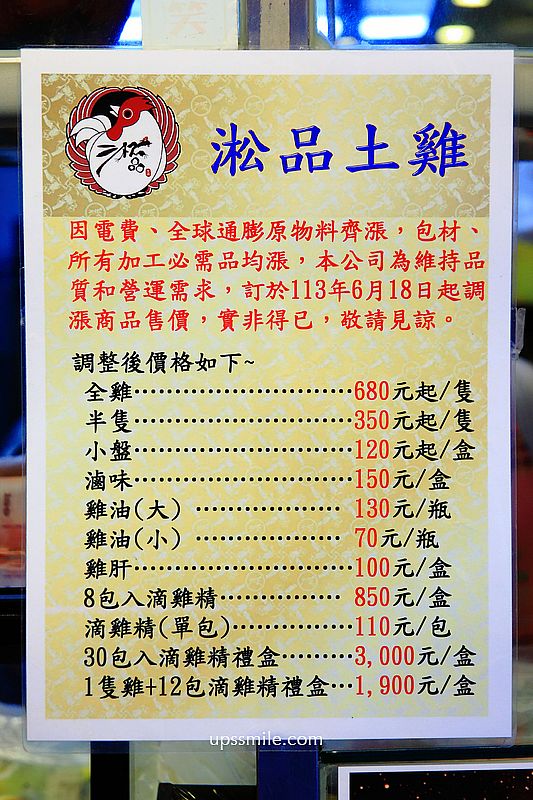 淞品土雞
因電費、全球通膨原物料齊漲，包材、
所有加工必需品均漲，本公司為維持品
質和營運需求，訂於113年6月18日起調
漲商品售價，實非得已，敬請見諒。
調整後價格如下~
全雞⋯⋯⋯⋯⋯⋯⋯⋯⋯680元起/隻
半隻⋯⋯⋯⋯⋯⋯⋯⋯⋯350元起/隻
小盤⋯⋯⋯⋯⋯⋯⋯⋯⋯120元起/盒
滷味⋯⋯⋯⋯⋯⋯⋯⋯⋯150元/盒
雞油(大) ⋯⋯⋯⋯⋯⋯ 130元/瓶
雞油(小) ⋯⋯⋯⋯⋯⋯ 70元/瓶
雞肝⋯⋯⋯⋯⋯⋯⋯⋯⋯100元/盒
8包入滴雞精⋯⋯⋯⋯⋯ 850元/盒
滴雞精(單包)⋯⋯⋯⋯⋯110元/包
30包入滴雞精禮盒⋯⋯⋯3,000元/盒
1隻雞+12包滴雞精禮盒⋯1,900元/盒
upssmile.com